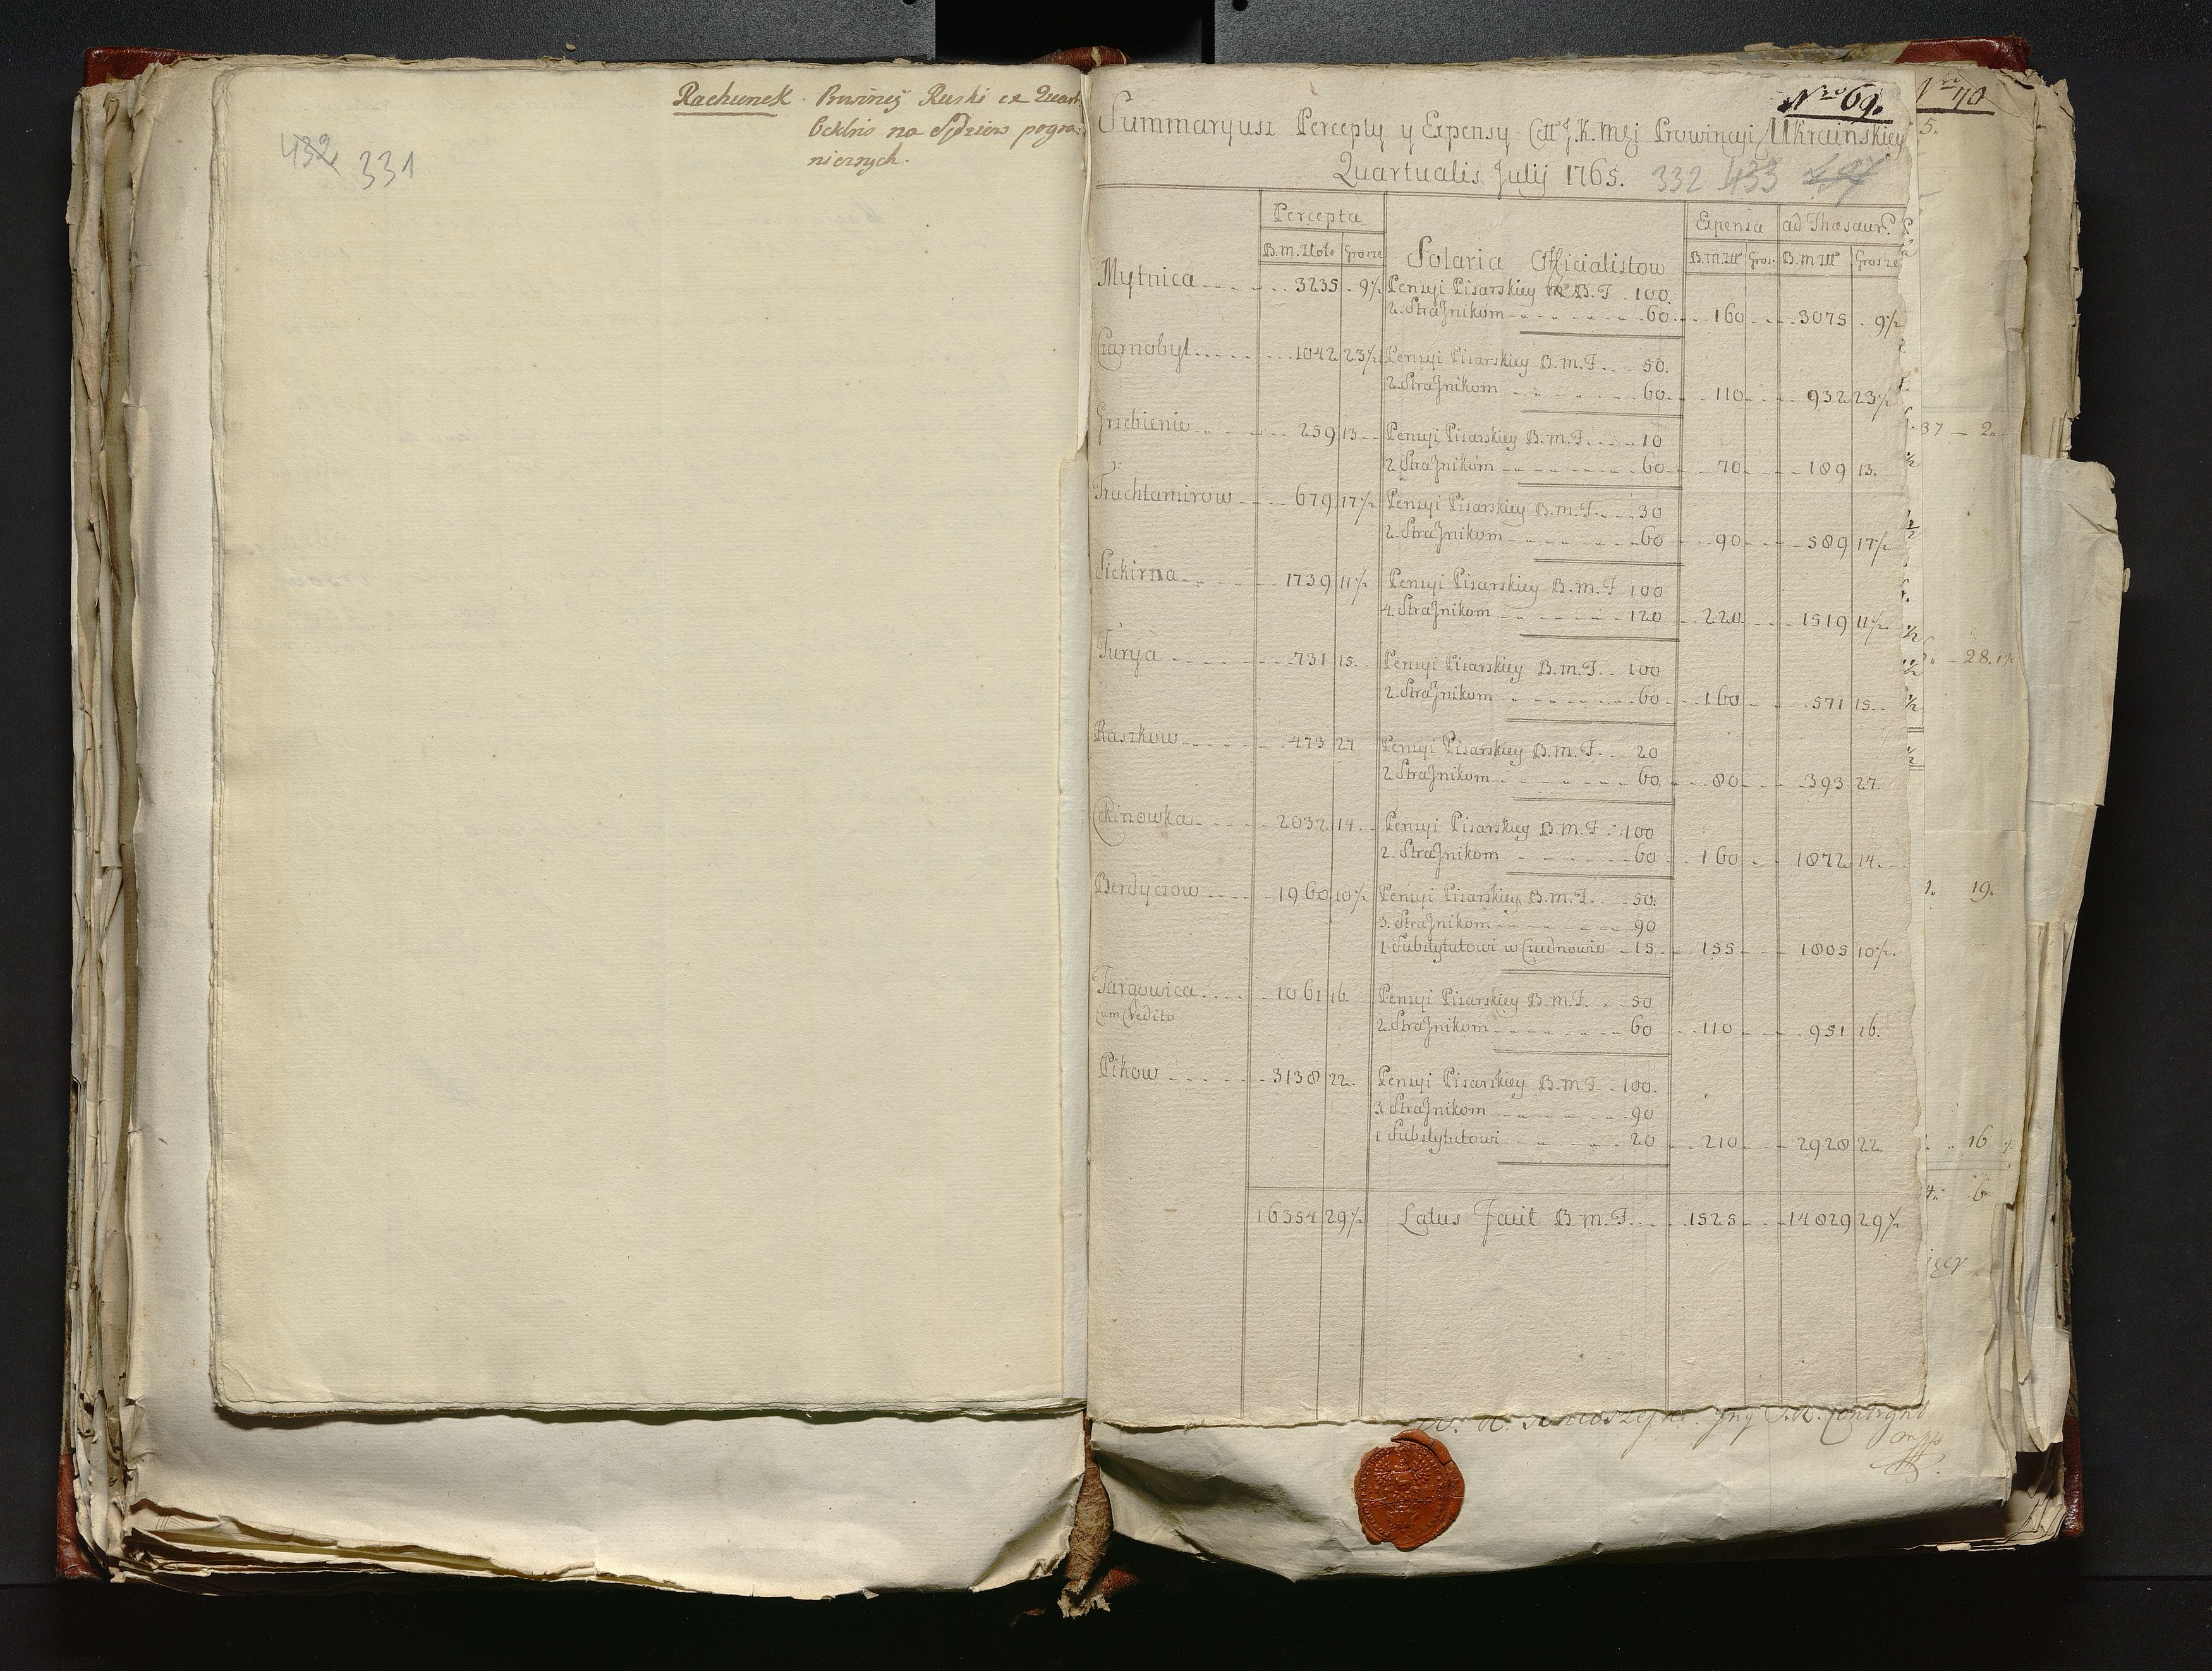 Rachunek. Prowincÿ Ruski ex Quart.
na Sędziow pogra:
nicznych.
432 331
Nro 69.
Summaryusz Percepty y Expensy Cłł J.K.Mci Prowincyi Ukrainskiey
Quartualis Julij 1765. 332 433
Percepta Expensa ad Thesaur.
B.m. Złote Grosze Solaria Officialistow B.m.Złł Gros: B.m Złł Grosze
Mytnica 3235 9½ Pensyi Pisarskiey B.F. 100.
2. Strażnikom 60 160 3075 9½
Czarnobyl 1042 23½ Pensyi Pisarskiey B.m.F. 50.
2. Strażnikom 60 110 932 23½
Grzebienie 259 13 Pensyi Pisarskiey B.m.F. 10
2. Strażnikom 60 70 189 13.
Trachtamirow 679 17½ Pensyi Pisarskiey B.m.F. 30
2. Strażnikom 60 90 589 17½
Siekirna 1739 11½ Pensyi Pisarskiey B.m.F 100
4. Strażnikom 120 220 1519 11½
Turya 731 15. Pensyi Pisarskiey B.m.F. 100
2. Strażnikom 60 160 571 15
Raszkow 473 27 Pensyi Pisarskiey B.m.F. 20
2. Strażnikom 60 80 393 27.
Cekinowka 2032 14. Pensyi Pisarskiey B.m.F. 100
2. Strażnikom 60 160 1872 14.
Berdyczow 1960 10½ Pensyi Pisarskiey B.m.F. 50.
3. Strażnikom 90
1 Substytutowi w Czudnowie 15 155 1805 10½.
Targowica 1061 16. Pensyi Pisarskiey B.m.F. 50
Cum Credito
2. Strażnikom 60 110 951 16.
Pikow 3138 22. Pensyi Pisarskiey B.m.F. 100.
3. Strażnikom 90
1 Substytutowi 20 210 2928 22
16354 29½ Latus Facit B.m.F. 1525 14829 29½
Nro 70
5.
37 2
28. 1½
19.
16
6
mpp